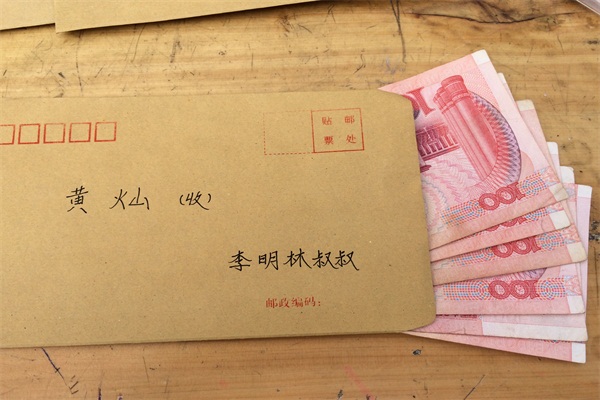 贴 邮
票 处
黄 灿 (收)
李明林叔叔
邮政编码:
100
100
100
100